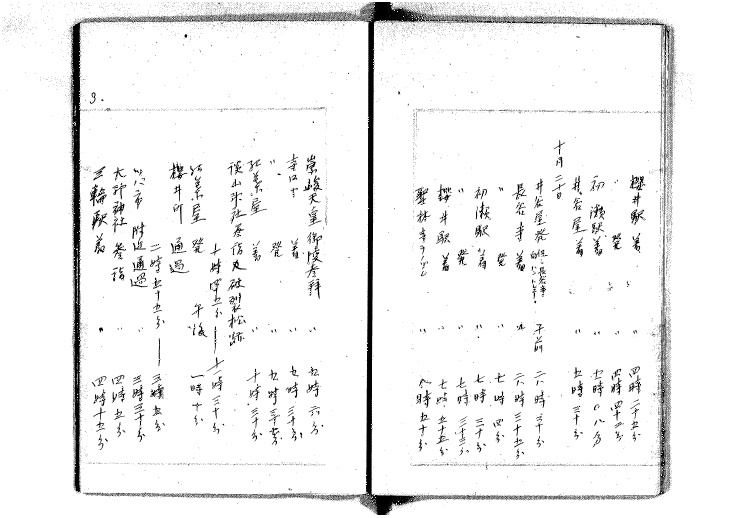 櫻井駅 着 〃 四時二十五分
〃 發 〃 四時四十
初瀬駅 着 〃 五時〇八分
井谷屋 着 〃 五時三十分
十月二十日
井谷屋發 午前 六時三十分
長谷寺 着 〃 六時三十五分
〃 發 〃 七時 四分
初瀬駅 着 〃 七時 三十分
〃 發 〃 七時 三十三分
櫻井駅 着 〃 七時 五十五分
聖林寺 〃 八時五十分
3.
崇峻天皇御陵参拜 〃 九時 六分
着 〃 九時 三十分
〃 發 〃 九時
紅葉屋 着 〃 十時 三十分
談山神社参詣及破裂松跡
十時四五分――十一時三十分
紅葉屋 發 午後 一時十分
櫻井町 通過
二時五十五分――三時五分
附近通過 〃 三時三十分
大神神社 参詣 〃 四時五分
三輪駅着 〃 四時十五分